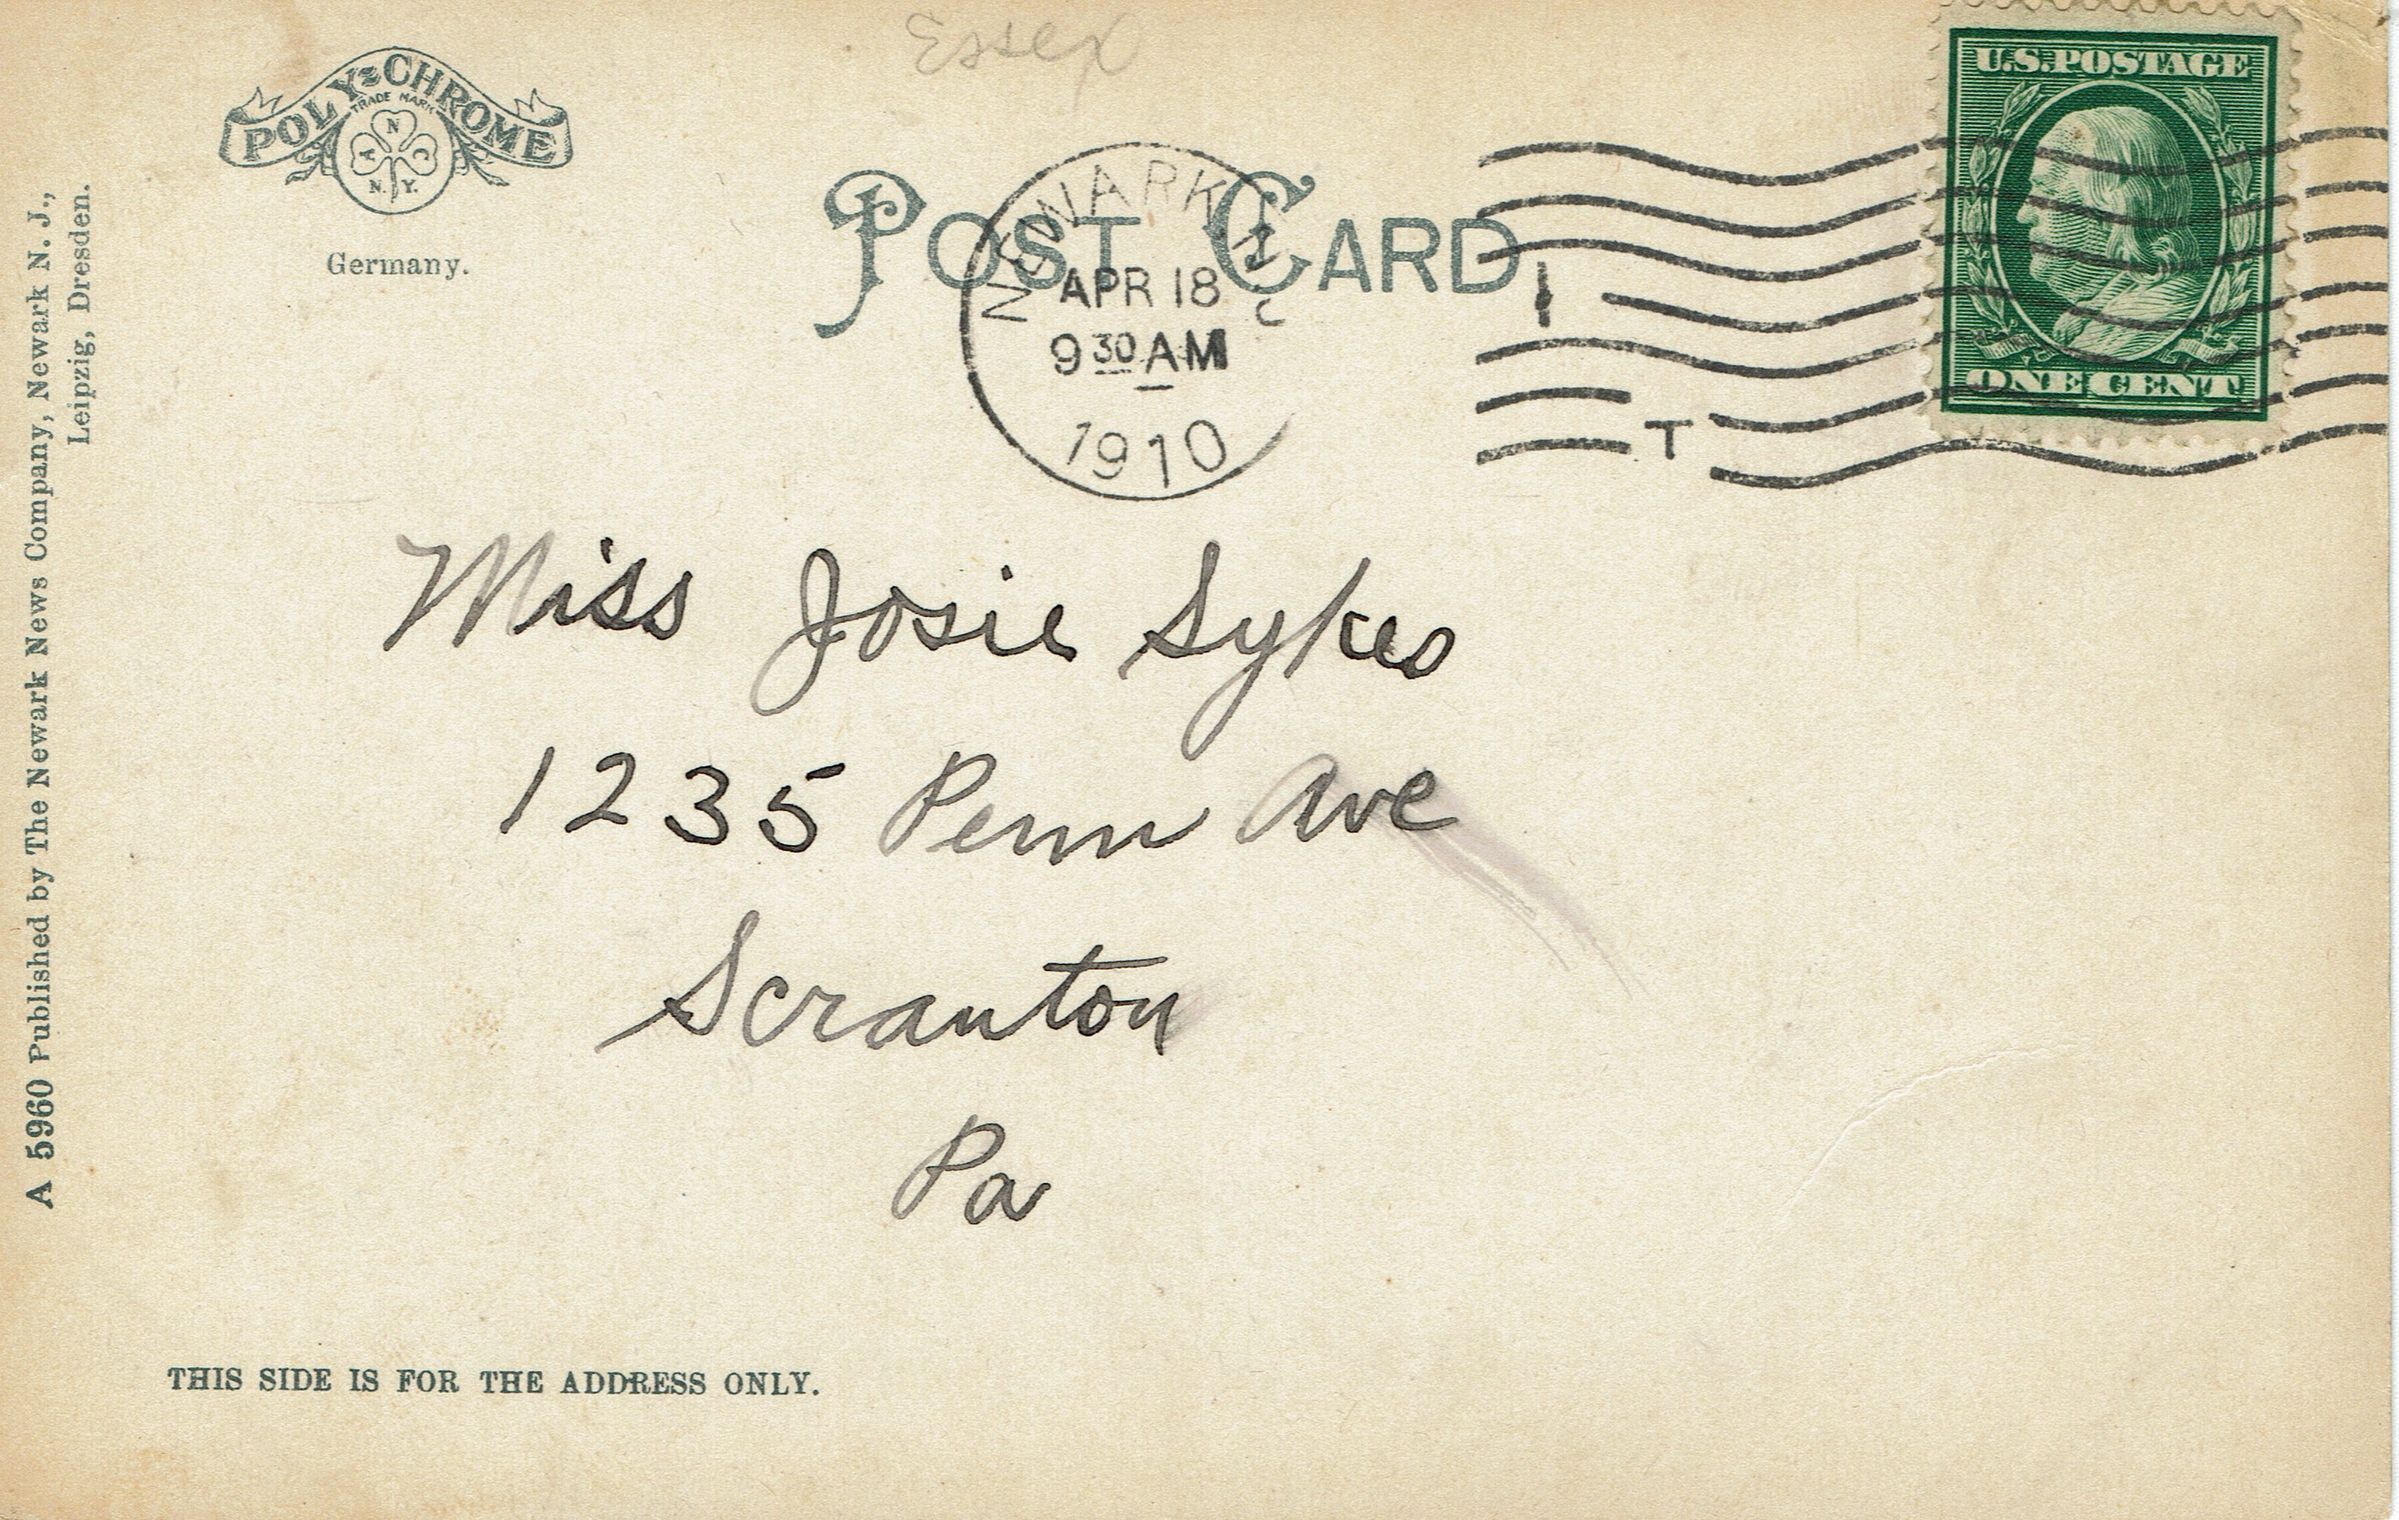 Essex
POLY-CHROME
TRADE MARK
A N C
N. Y.
Germany.
POST CARD
NEWARK, N.J.
APR 18
9 30 AM
1910
T
U.S. POSTAGE
ONE CENT
Miss Josie Sykes
1235 Penn Ave
Scranton
Pa
A 5960 Published by The Newark News Company, Newark N. J.,
Leipzig, Dresden.
THIS SIDE IS FOR THE ADDRESS ONLY.